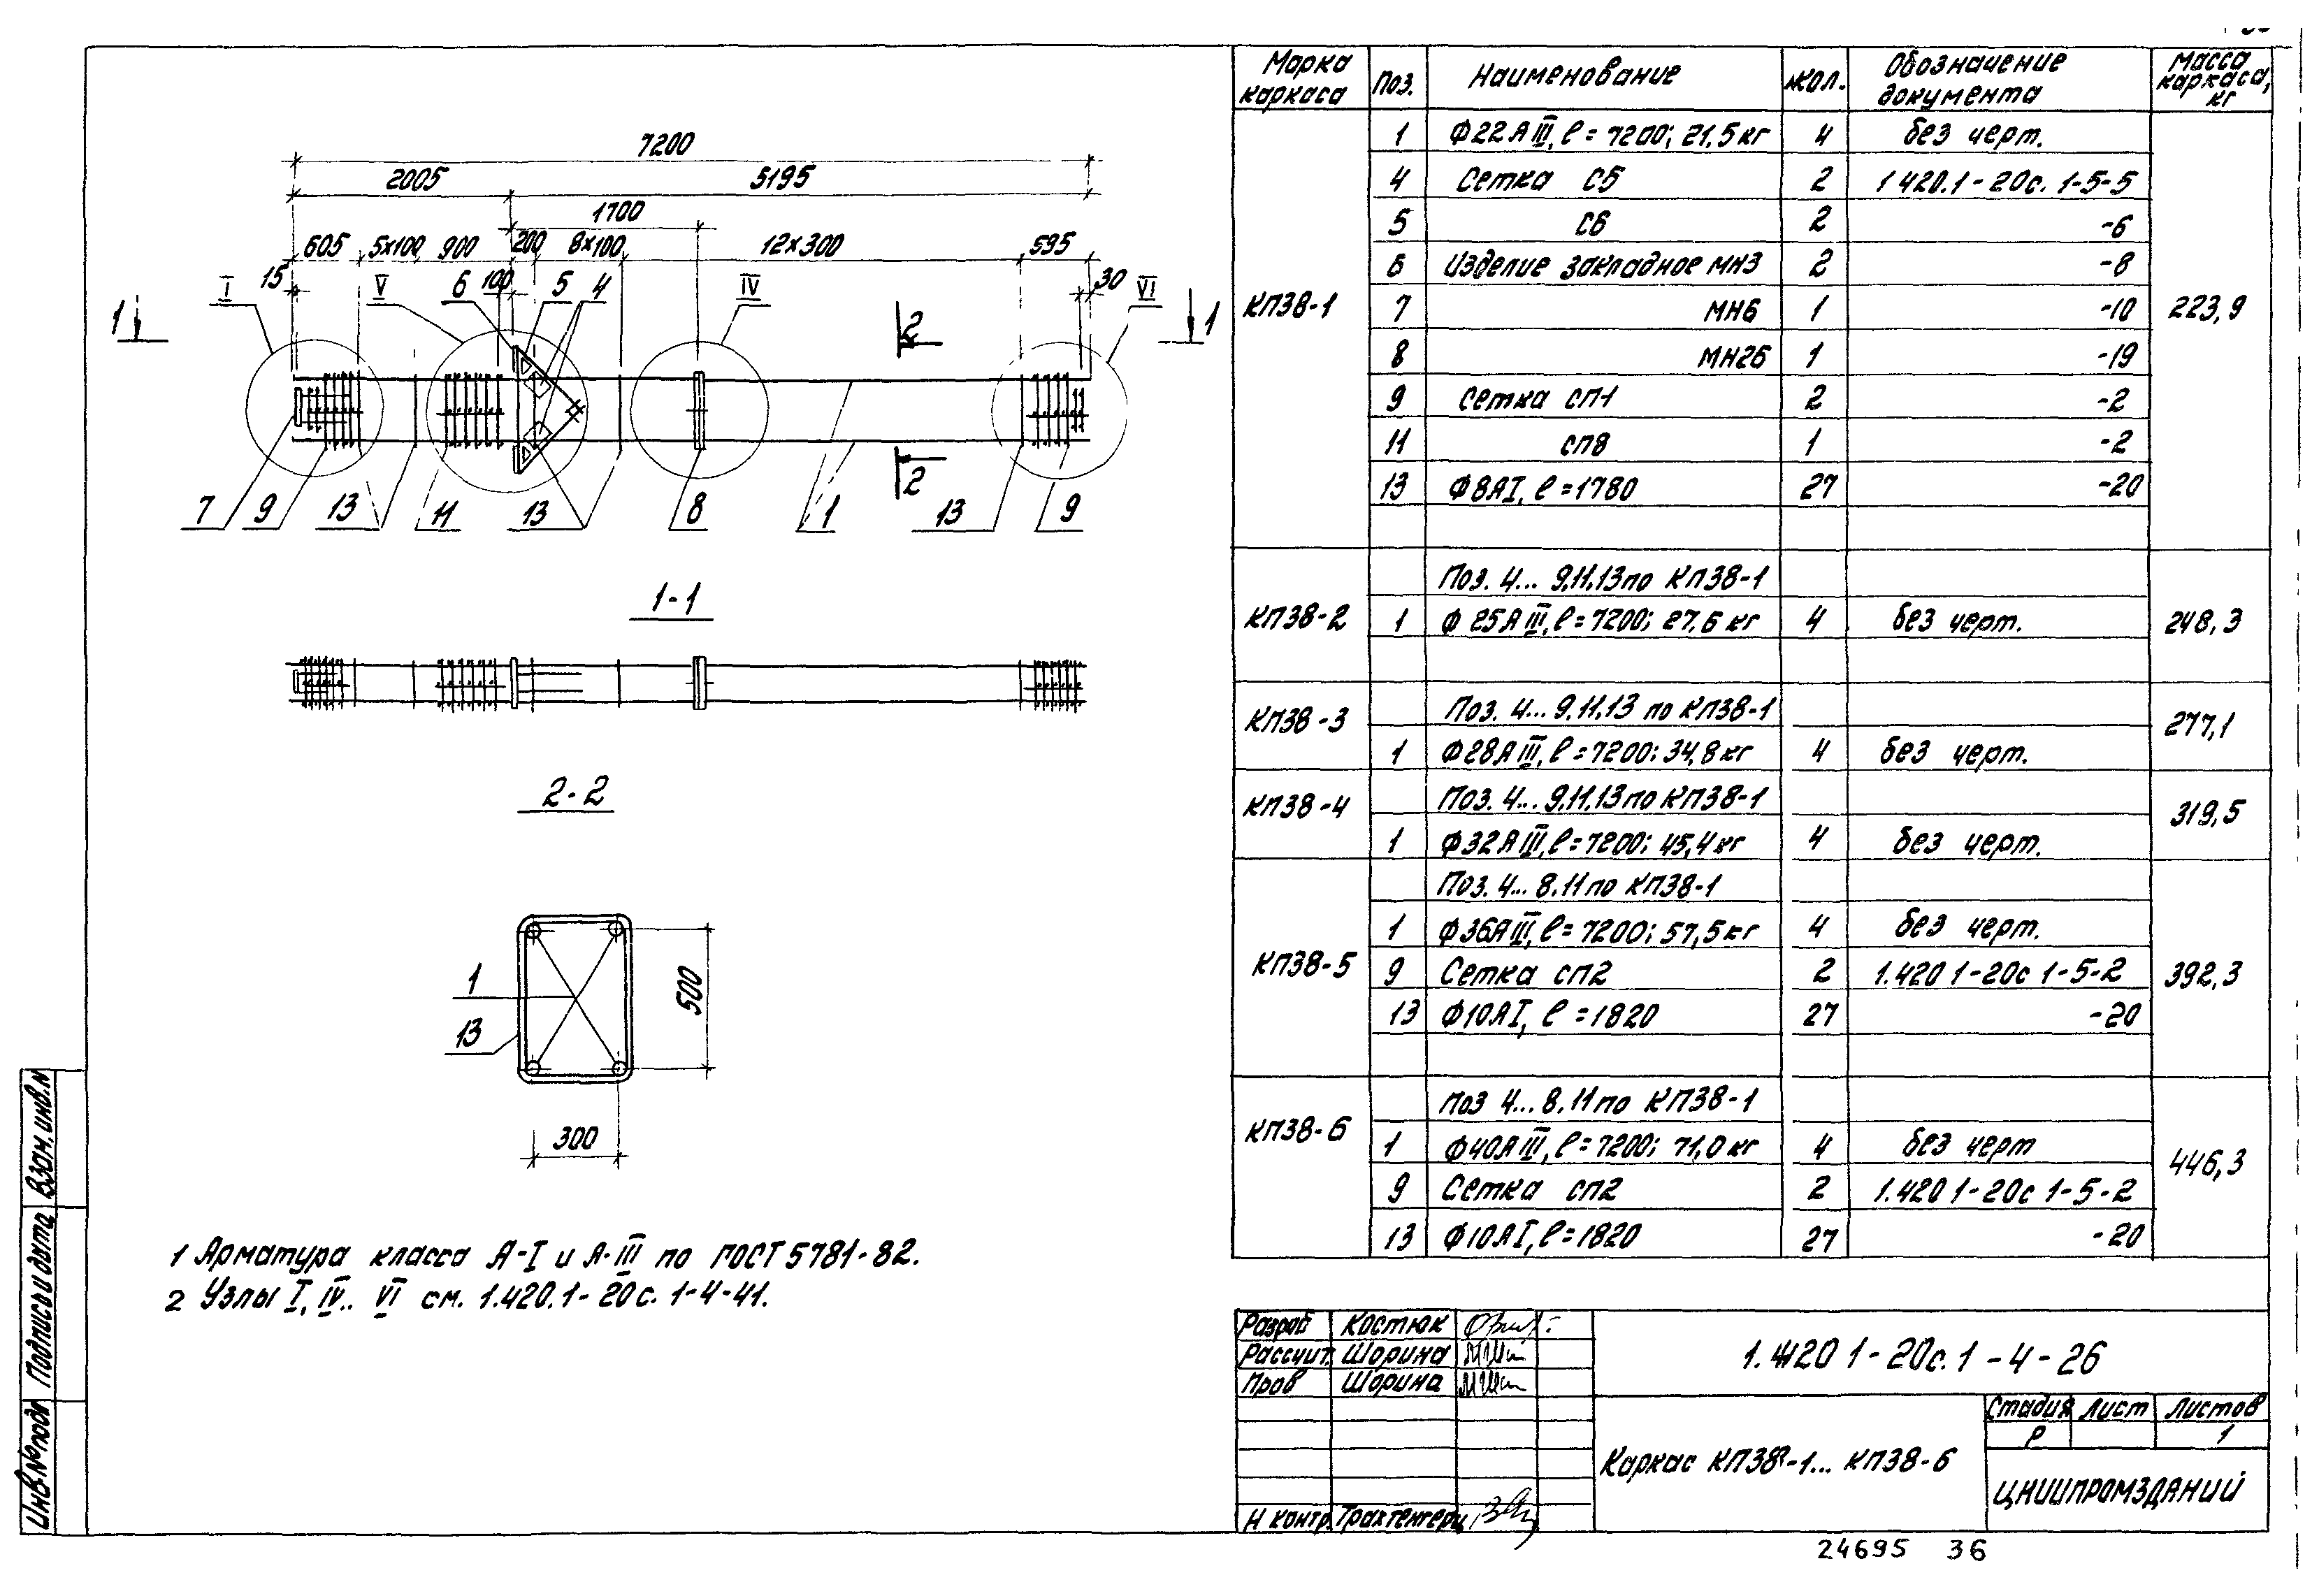 7200
2005 5195
1700
605 5×100 900 200 8×100 12×300 595
15 100 30
I V 6 5 4 IV VI
1 1
2
2
7 9 13 11 13 8 1 13 9
1-1
2-2
1
13
500
300
1 Арматура класса А-I и А-III по ГОСТ 5781-82.
2 Узлы I, IV.. VI см. 1.420.1-20с. 1-4-41.
Марка каркаса Поз. Наименование Кол. Обозначение документа Масса каркаса, кг
КП38-1 223,9
1 Ф22АIII, ℓ=7200; 21,5кг 4 без черт.
4 Сетка С5 2 1 420.1-20с. 1-5-5
5 С6 2 -6
6 Изделие закладное МН3 2 -8
7 МН6 1 -10
8 МН26 1 -19
9 Сетка СП-1 2 -2
11 СП8 1 -2
13 Ф8АI, ℓ=1780 27 -20
КП38-2 248,3
Поз. 4... 9,11,13 по КП38-1
1 Ф 25АIII, ℓ=7200; 27,6 кг 4 без черт.
КП38-3 277,1
Поз. 4... 9,11,13 по КП38-1
1 Ф28АIII, ℓ=7200; 34,8кг 4 без черт.
КП38-4 319,5
Поз. 4... 9,11,13 по КП38-1
1 Ф32АIII, ℓ=7200; 45,4кг 4 без черт.
КП38-5 392,3
Поз. 4... 8,11 по КП38-1
1 Ф36АIII, ℓ=7200; 57,5кг 4 без черт.
9 Сетка СП2 2 1.420 1-20с 1-5-2
13 Ф10АI, ℓ=1820 27 -20
КП38-6 446,3
Поз 4... 8,11 по КП38-1
1 Ф40АIII, ℓ=7200; 71,0кг 4 без черт
9 Сетка СП2 2 1.420 1-20с 1-5-2
13 Ф10АI, ℓ=1820 27 -20
Разраб Костюк
Рассчит. Шорина
Пров Шорина
Н контр. Трахтенгерц
1.420 1-20с.1-4-26
Каркас КП38-1... КП38-6
Стадия Лист Листов
Р 1
ЦНИИПРОМЗДАНИЙ
24695 36
Инв.№подл Подпись и дата Взам.инв.N